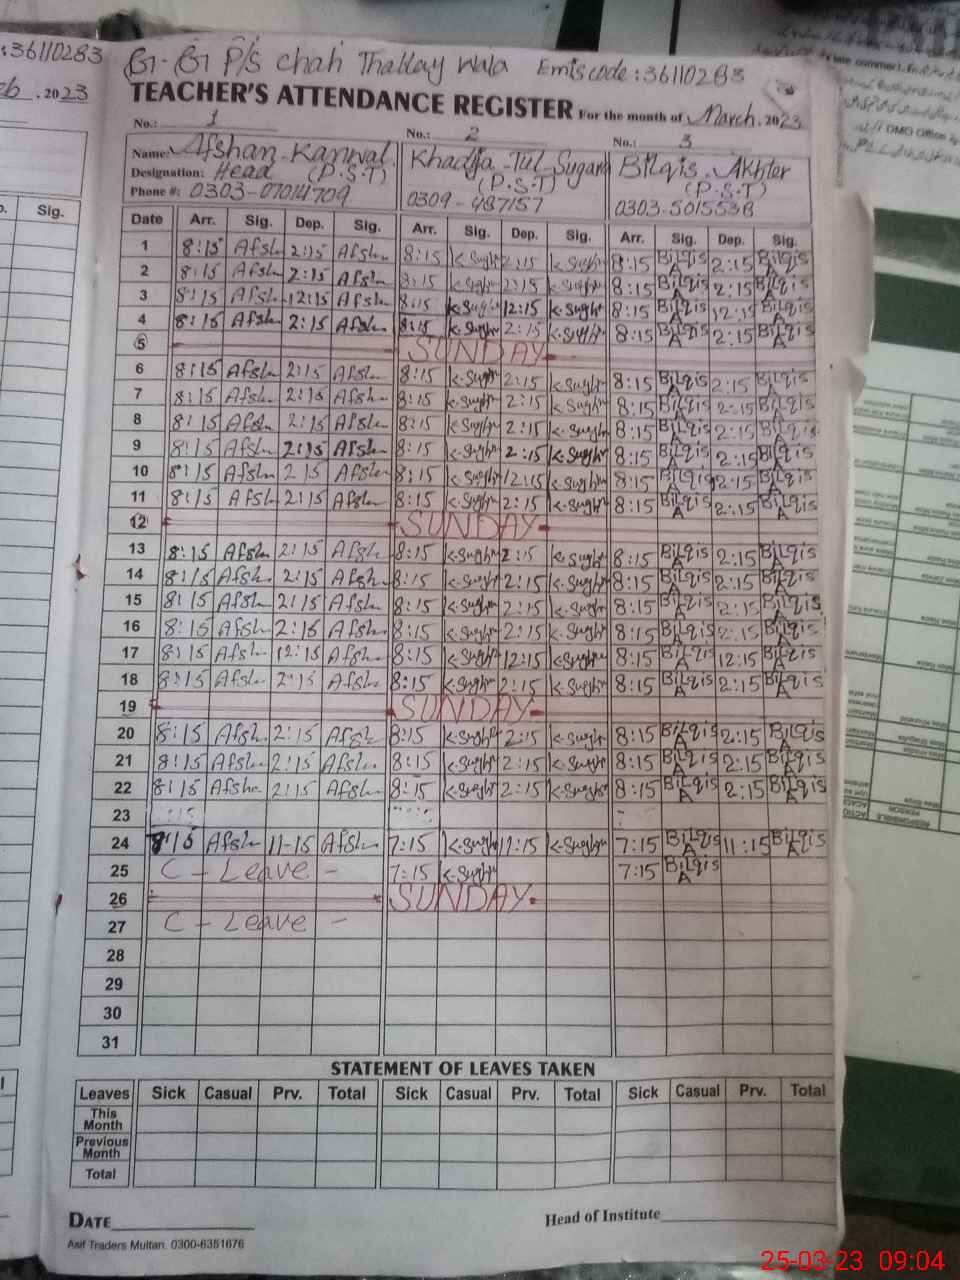 : 36110283
G.G P/S chah Thallay Wala Emis code : 36110283
eb . 2023
TEACHER'S ATTENDANCE REGISTER For the month of March. 2023
No.: 1 No.: 2 No.: 3
Name: Afshan Kanwal. Khadija Tul Sugara Bilqis Akhter
Designation: Head (P.S.T) (P.S.T) (P.S.T)
Phone #: 0303-07014709 0309-487157 0303.5015538
Sig. Date Arr. Sig. Dep. Sig. Arr. Sig. Dep. Sig. Arr. Sig. Dep. Sig.
1 8:15 Afsh 2:15 Afsh 8:15 K.Sughr 2:15 K.Sughr 8:15 Bilqis A 2:15 Bilqis A
2 8:15 Afsh 2:15 Afsh 8:15 K.Sughr 2:15 K.Sughr 8:15 Bilqis A 2:15 Bilqis A
3 8:15 Afsh 12:15 Afsh 8:15 K.Sughr 12:15 K.Sughr 8:15 Bilqis A 12:15 Bilqis A
4 8:15 Afsh 2:15 Afsh 8:15 K.Sughr 2:15 K.Sughr 8:15 Bilqis A 2:15 Bilqis A
5 SUNDAY
6 8:15 Afsh 2:15 Afsh 8:15 K.Sughr 2:15 K.Sughr 8:15 Bilqis A 2:15 Bilqis A
7 8:15 Afsh 2:15 Afsh 8:15 K.Sughr 2:15 K.Sughr 8:15 Bilqis A 2:15 Bilqis A
8 8:15 Afsh 2:15 Afsh 8:15 K.Sughr 2:15 K.Sughr 8:15 Bilqis A 2:15 Bilqis A
9 8:15 Afsh 2:15 Afsh 8:15 K.Sughr 2:15 K.Sughr 8:15 Bilqis A 2:15 Bilqis A
10 8:15 Afsh 2 15 Afsh 8:15 K.Sughr 12:15 K.Sughr 8:15 Bilqis A 12:15 Bilqis A
11 8:15 Afsh 2:15 Afsh 8:15 K.Sughr 2:15 K.Sughr 8:15 Bilqis A 2:15 Bilqis A
12 SUNDAY
13 8:15 Afsh 2:15 Afsh 8:15 K.Sughr 2:15 K.Sughr 8:15 Bilqis A 2:15 Bilqis A
14 8:15 Afsh 2:15 Afsh 8:15 K.Sughr 2:15 K.Sughr 8:15 Bilqis A 2:15 Bilqis A
15 8:15 Afsh 2:15 Afsh 8:15 K.Sughr 2:15 K.Sughr 8:15 Bilqis A 2:15 Bilqis A
16 8:15 Afsh 2:15 Afsh 8:15 K.Sughr 2:15 K.Sughr 8:15 Bilqis A 2:15 Bilqis A
17 8:15 Afsh 12:15 Afsh 8:15 K.Sughr 12:15 K.Sughr 8:15 Bilqis A 12:15 Bilqis A
18 8:15 Afsh 2:15 Afsh 8:15 K.Sughr 2:15 K.Sughr 8:15 Bilqis A 2:15 Bilqis A
19 SUNDAY
20 8:15 Afsh 2:15 Afsh 8:15 K.Sughr 2:15 K.Sughr 8:15 Bilqis A 2:15 Bilqis A
21 8:15 Afsh 2:15 Afsh 8:15 K.Sughr 2:15 K.Sughr 8:15 Bilqis A 2:15 Bilqis A
22 8:15 Afsh 2:15 Afsh 8:15 K.Sughr 2:15 K.Sughr 8:15 Bilqis A 2:15 Bilqis A
23
24 8:15 Afsh 11-15 Afsh 7:15 K.Sughr 11:15 K.Sughr 7:15 Bilqis A 11:15 Bilqis A
25 C - Leave - 7:15 K.Sughr 7:15 Bilqis A
26 SUNDAY
27 C - Leave -
28
29
30
31
STATEMENT OF LEAVES TAKEN
Leaves Sick Casual Prv. Total Sick Casual Prv. Total Sick Casual Prv. Total
This Month
Previous Month
Total
DATE Head of Institute
Asif Traders Multan. 0300-6351676
25-03-23 09:04